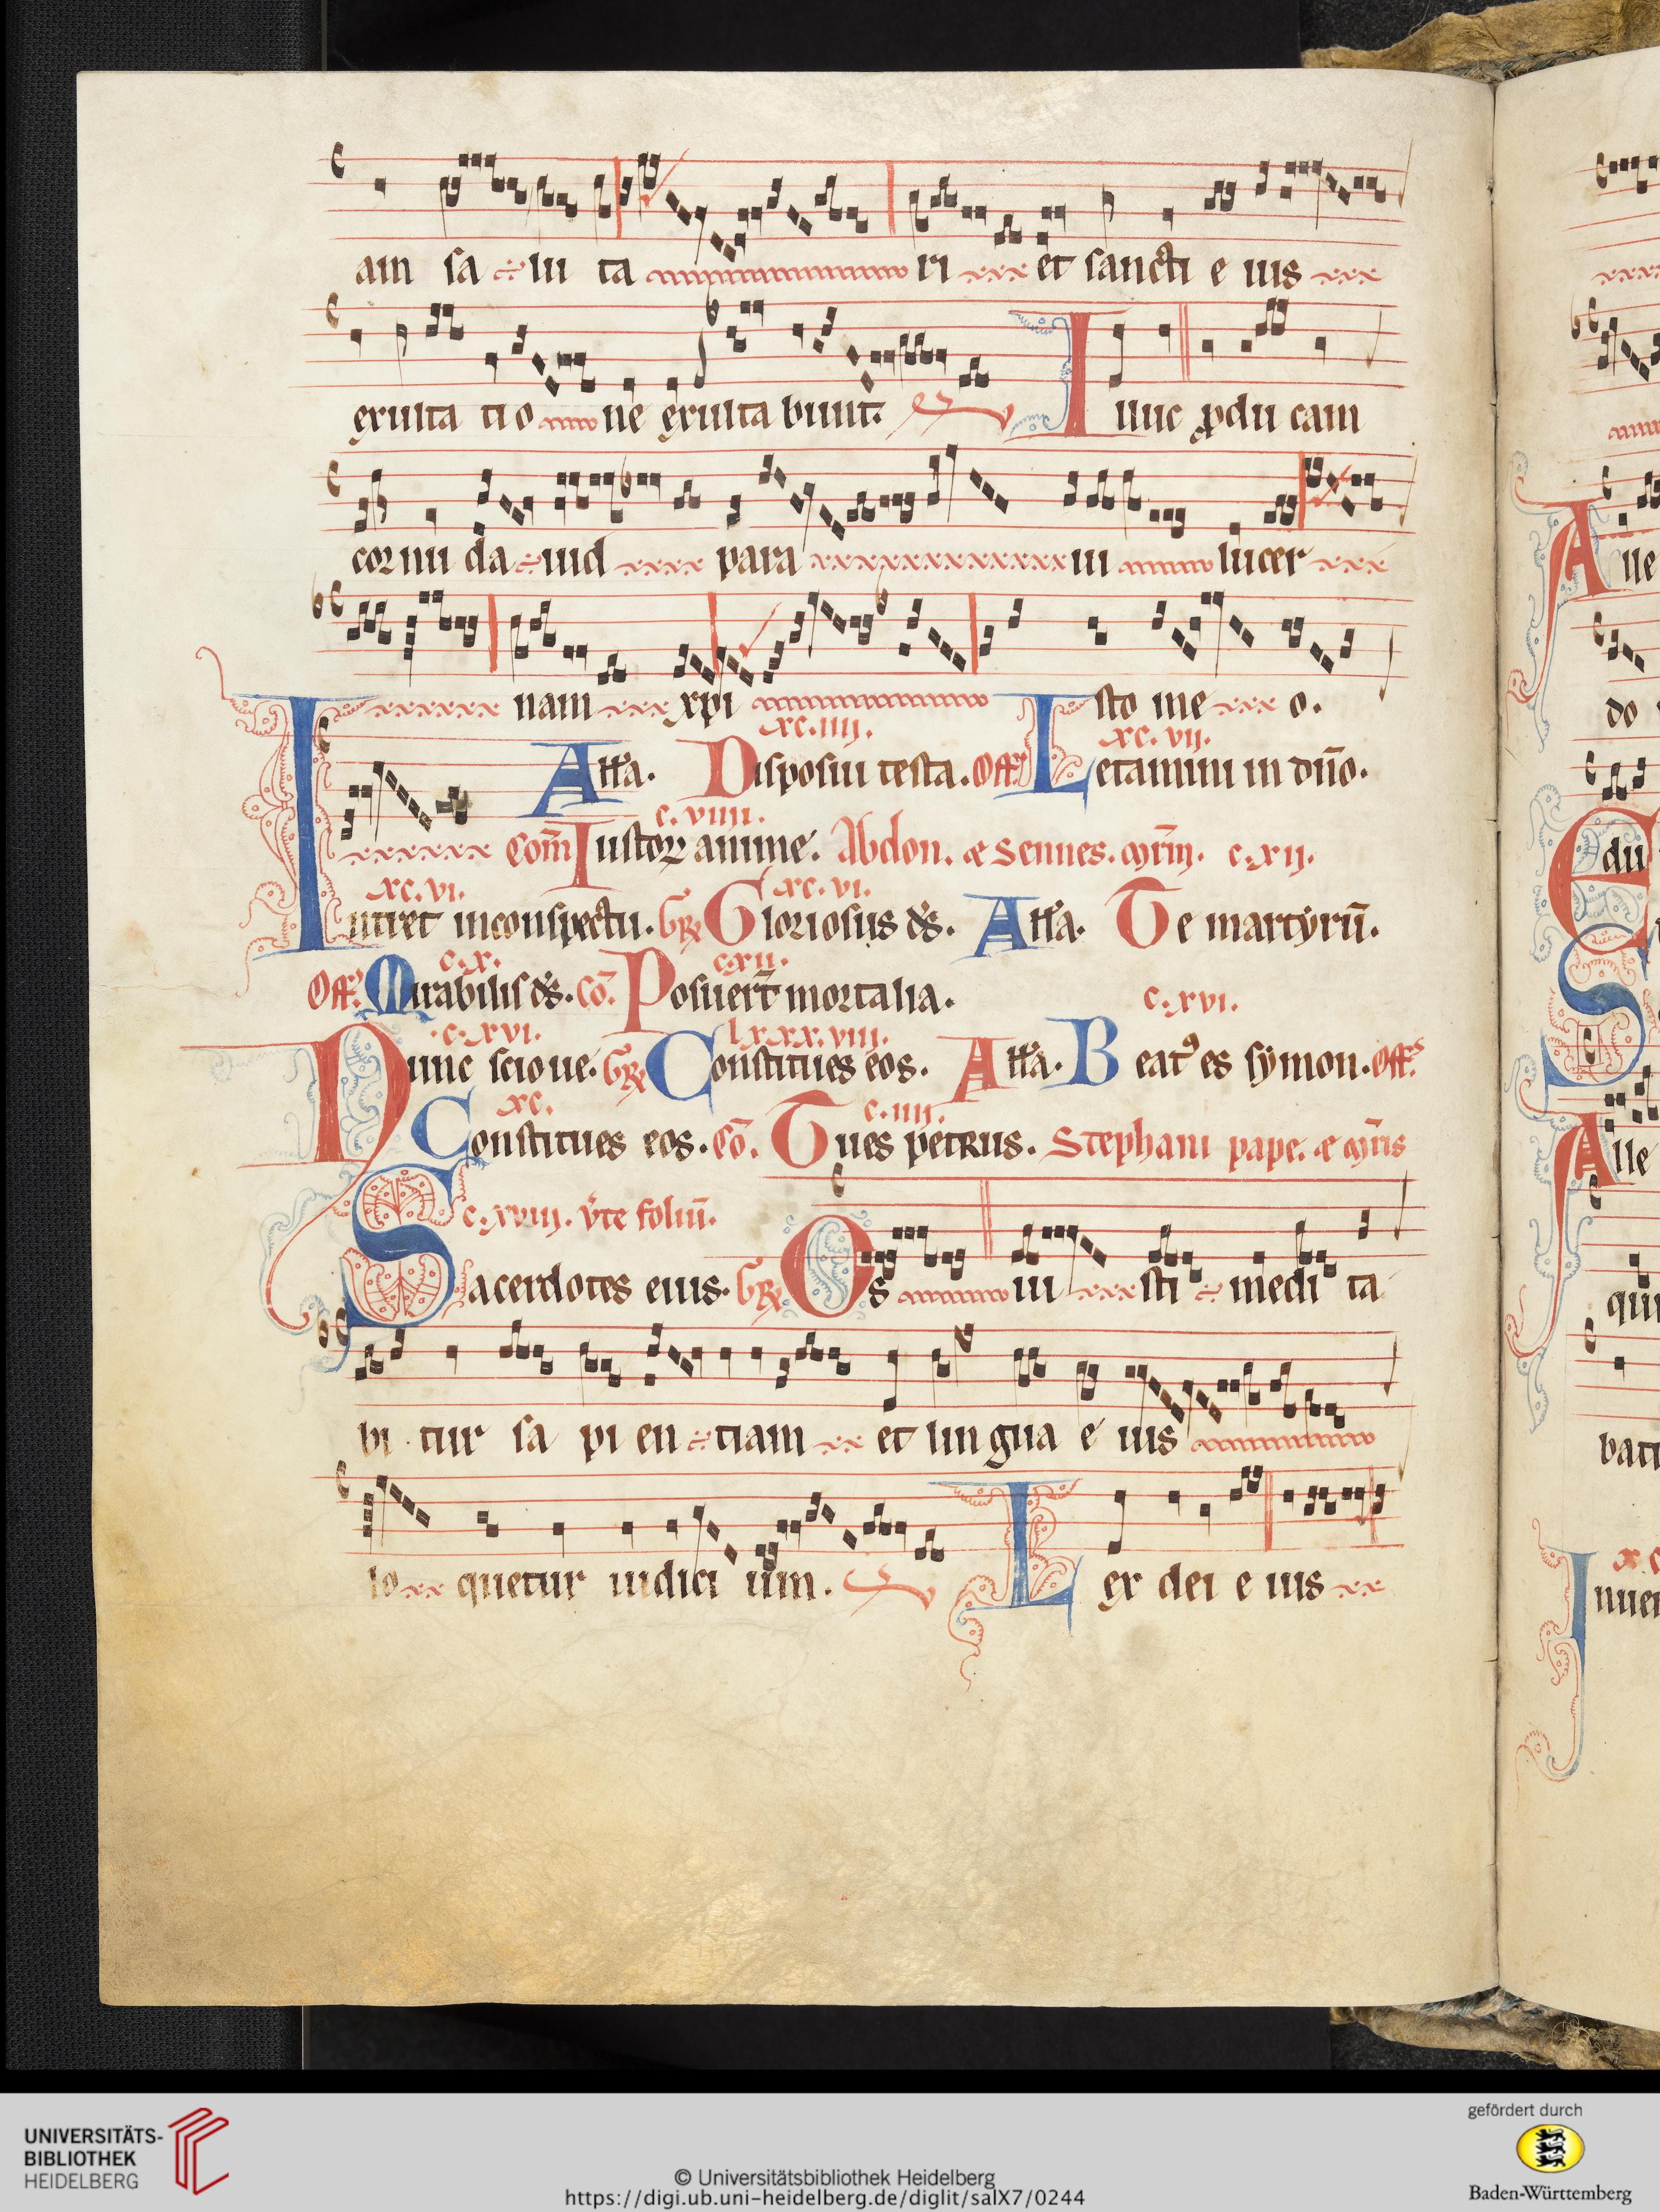 am sa lu ta ri et sancti e ius
exulta tio ne exulta bunt. Illuc ꝓdu cam
cornu da uid para ui lucer
nam xpi isto me o.
xc.iiii. xc.vii.
Alla. Disposui testa. Off. Letamini in dño.
c.viiii.
Com̄ Iustoꝝ anime. Abdon. et Sennes. mr̄m. c.xii.
xc.vi. xc.vi.
Intret in conspectu. Gr̄ Gloriosus ds̄. Alla. Te martyrū.
c.x. c.xii.
Off. Mirabilis ds̄. Cō. Posuer̄t mortalia. c.xvi.
c.xvi. lxxx.viii.
Nunc scio ue. Gr̄ Constitues eos. Alla. Beatꝰ es symon. Off.
xc. c.iiii.
Constitues eos. Cō. Tu es petrus. Stephani pape. et mr̄is
c.xviii. v̄te foliū.
Sacerdotes eius. Gr̄ Os iu sti medi ta
bi tur sa pi en tiam et lingua e ius
lo quetur iudici um. Lex dei e ius
Alle
do
du
Alle
qui
bati
xc
UNIVERSITÄTS-
BIBLIOTHEK
HEIDELBERG
© Universitätsbibliothek Heidelberg
https://digi.ub.uni-heidelberg.de/diglit/salX7/0244
gefördert durch
Baden-Württemberg